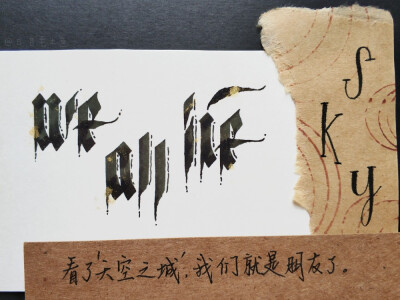 we
all lie
Sky
看了“天空之城”，我们就是朋友了。